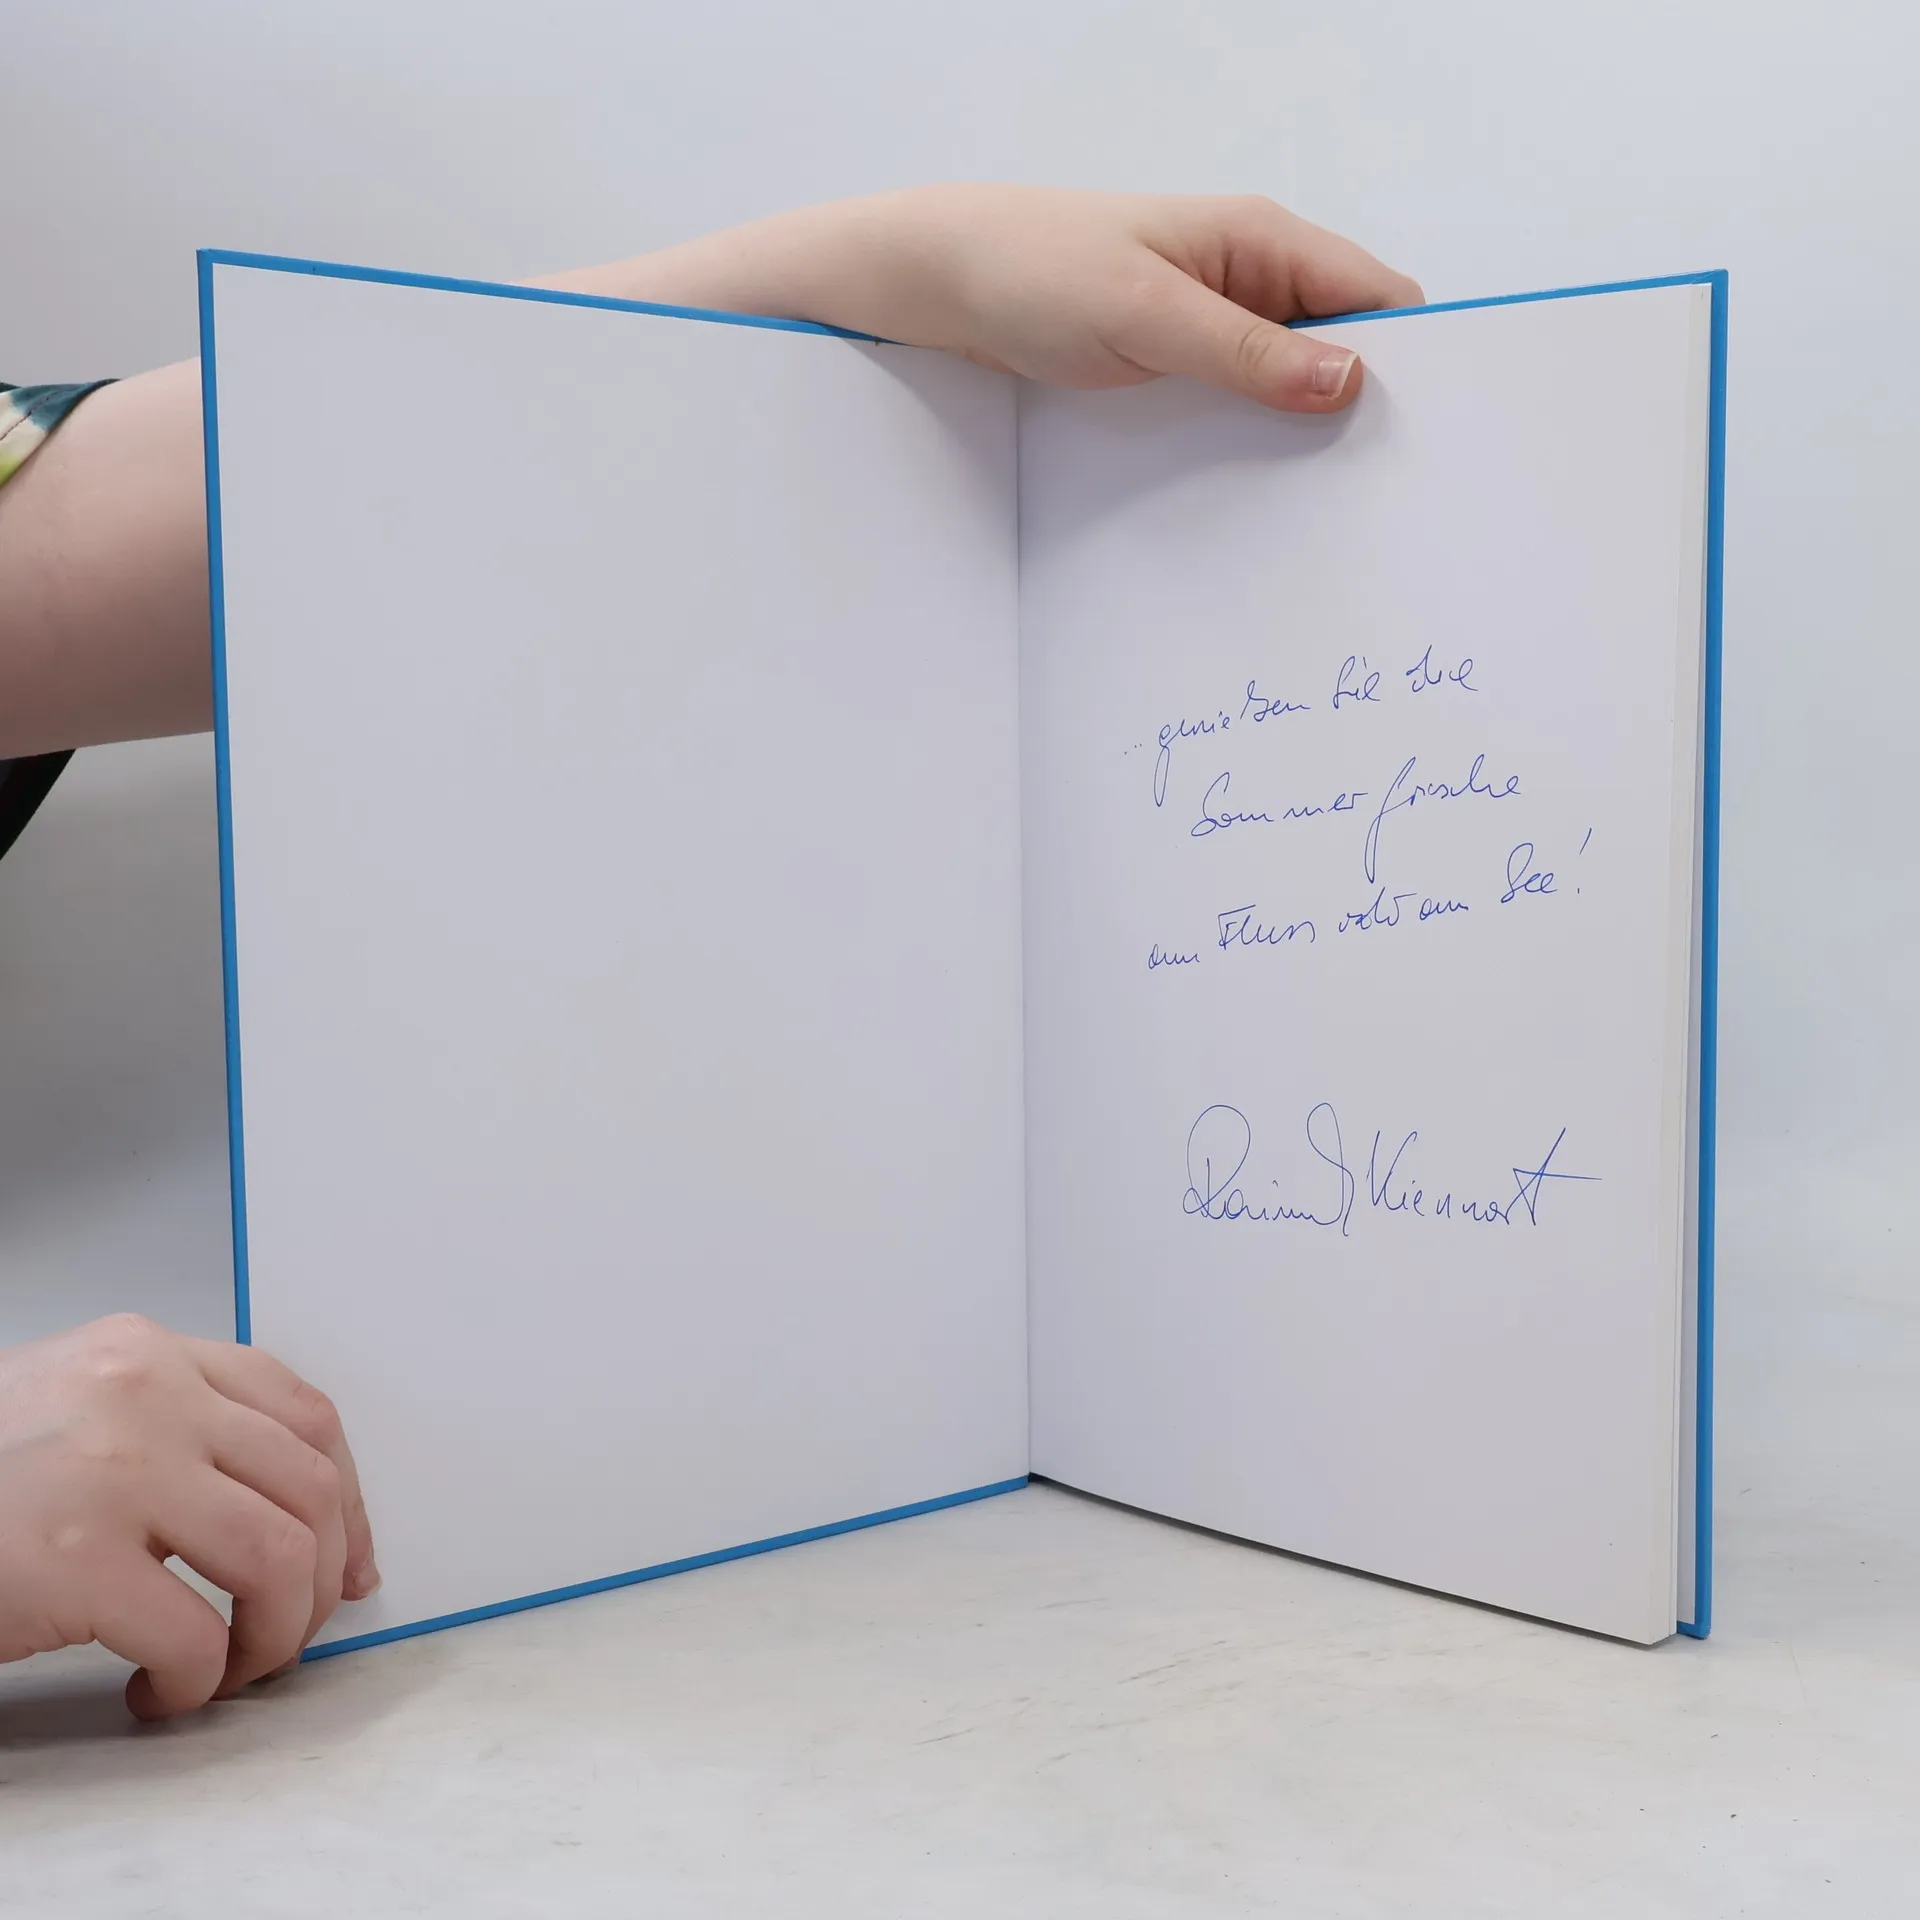 ... genießen Sie die
Sommerfrische
am Fluss und am See!
Raimund Kiennast